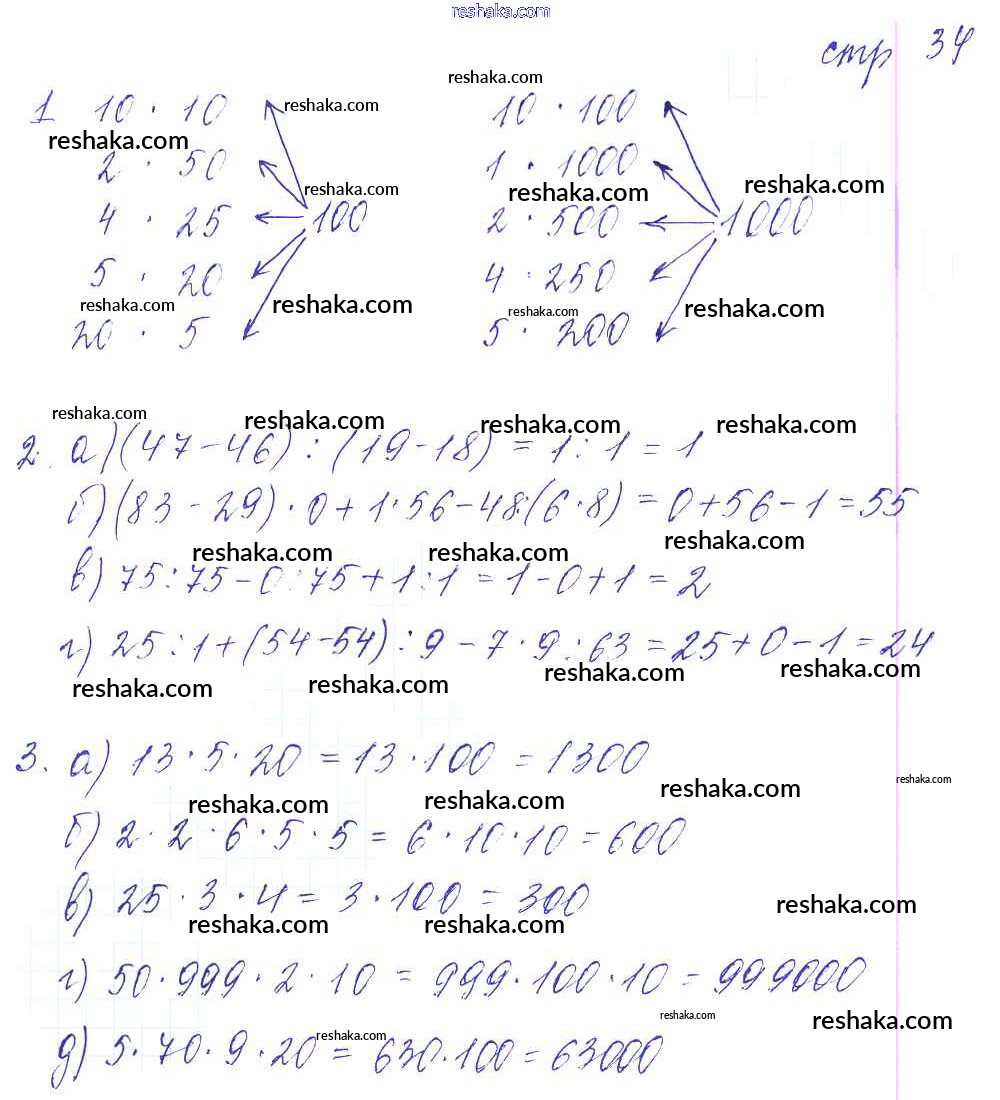 reshaka.com
стр 34
reshaka.com
1 10 · 10 reshaka.com 10 · 100
reshaka.com
2 · 50 reshaka.com 1 · 1000 reshaka.com reshaka.com
4 · 25 100 2 · 500 1000
5 · 20 4 · 250
reshaka.com reshaka.com reshaka.com reshaka.com
20 · 5 5 · 200
reshaka.com reshaka.com reshaka.com reshaka.com
2. а) (47 - 46) : (19 - 18) = 1 : 1 = 1
б) (83 - 29) · 0 + 1 · 56 - 48 : (6 · 8) = 0 + 56 - 1 = 55
reshaka.com reshaka.com reshaka.com
в) 75 : 75 - 0 : 75 + 1 : 1 = 1 - 0 + 1 = 2
г) 25 : 1 + (54 - 54) : 9 - 7 · 9 : 63 = 25 + 0 - 1 = 24
reshaka.com reshaka.com reshaka.com reshaka.com
3. а) 13 · 5 · 20 = 13 · 100 = 1300
reshaka.com reshaka.com reshaka.com reshaka.com
б) 2 · 2 · 6 · 5 · 5 = 6 · 10 · 10 = 600
в) 25 · 3 · 4 = 3 · 100 = 300
reshaka.com reshaka.com reshaka.com
г) 50 · 999 · 2 · 10 = 999 · 100 · 10 = 999000
reshaka.com reshaka.com
д) 5 · 70 · 9 · 20 reshaka.com = 630 · 100 = 63000